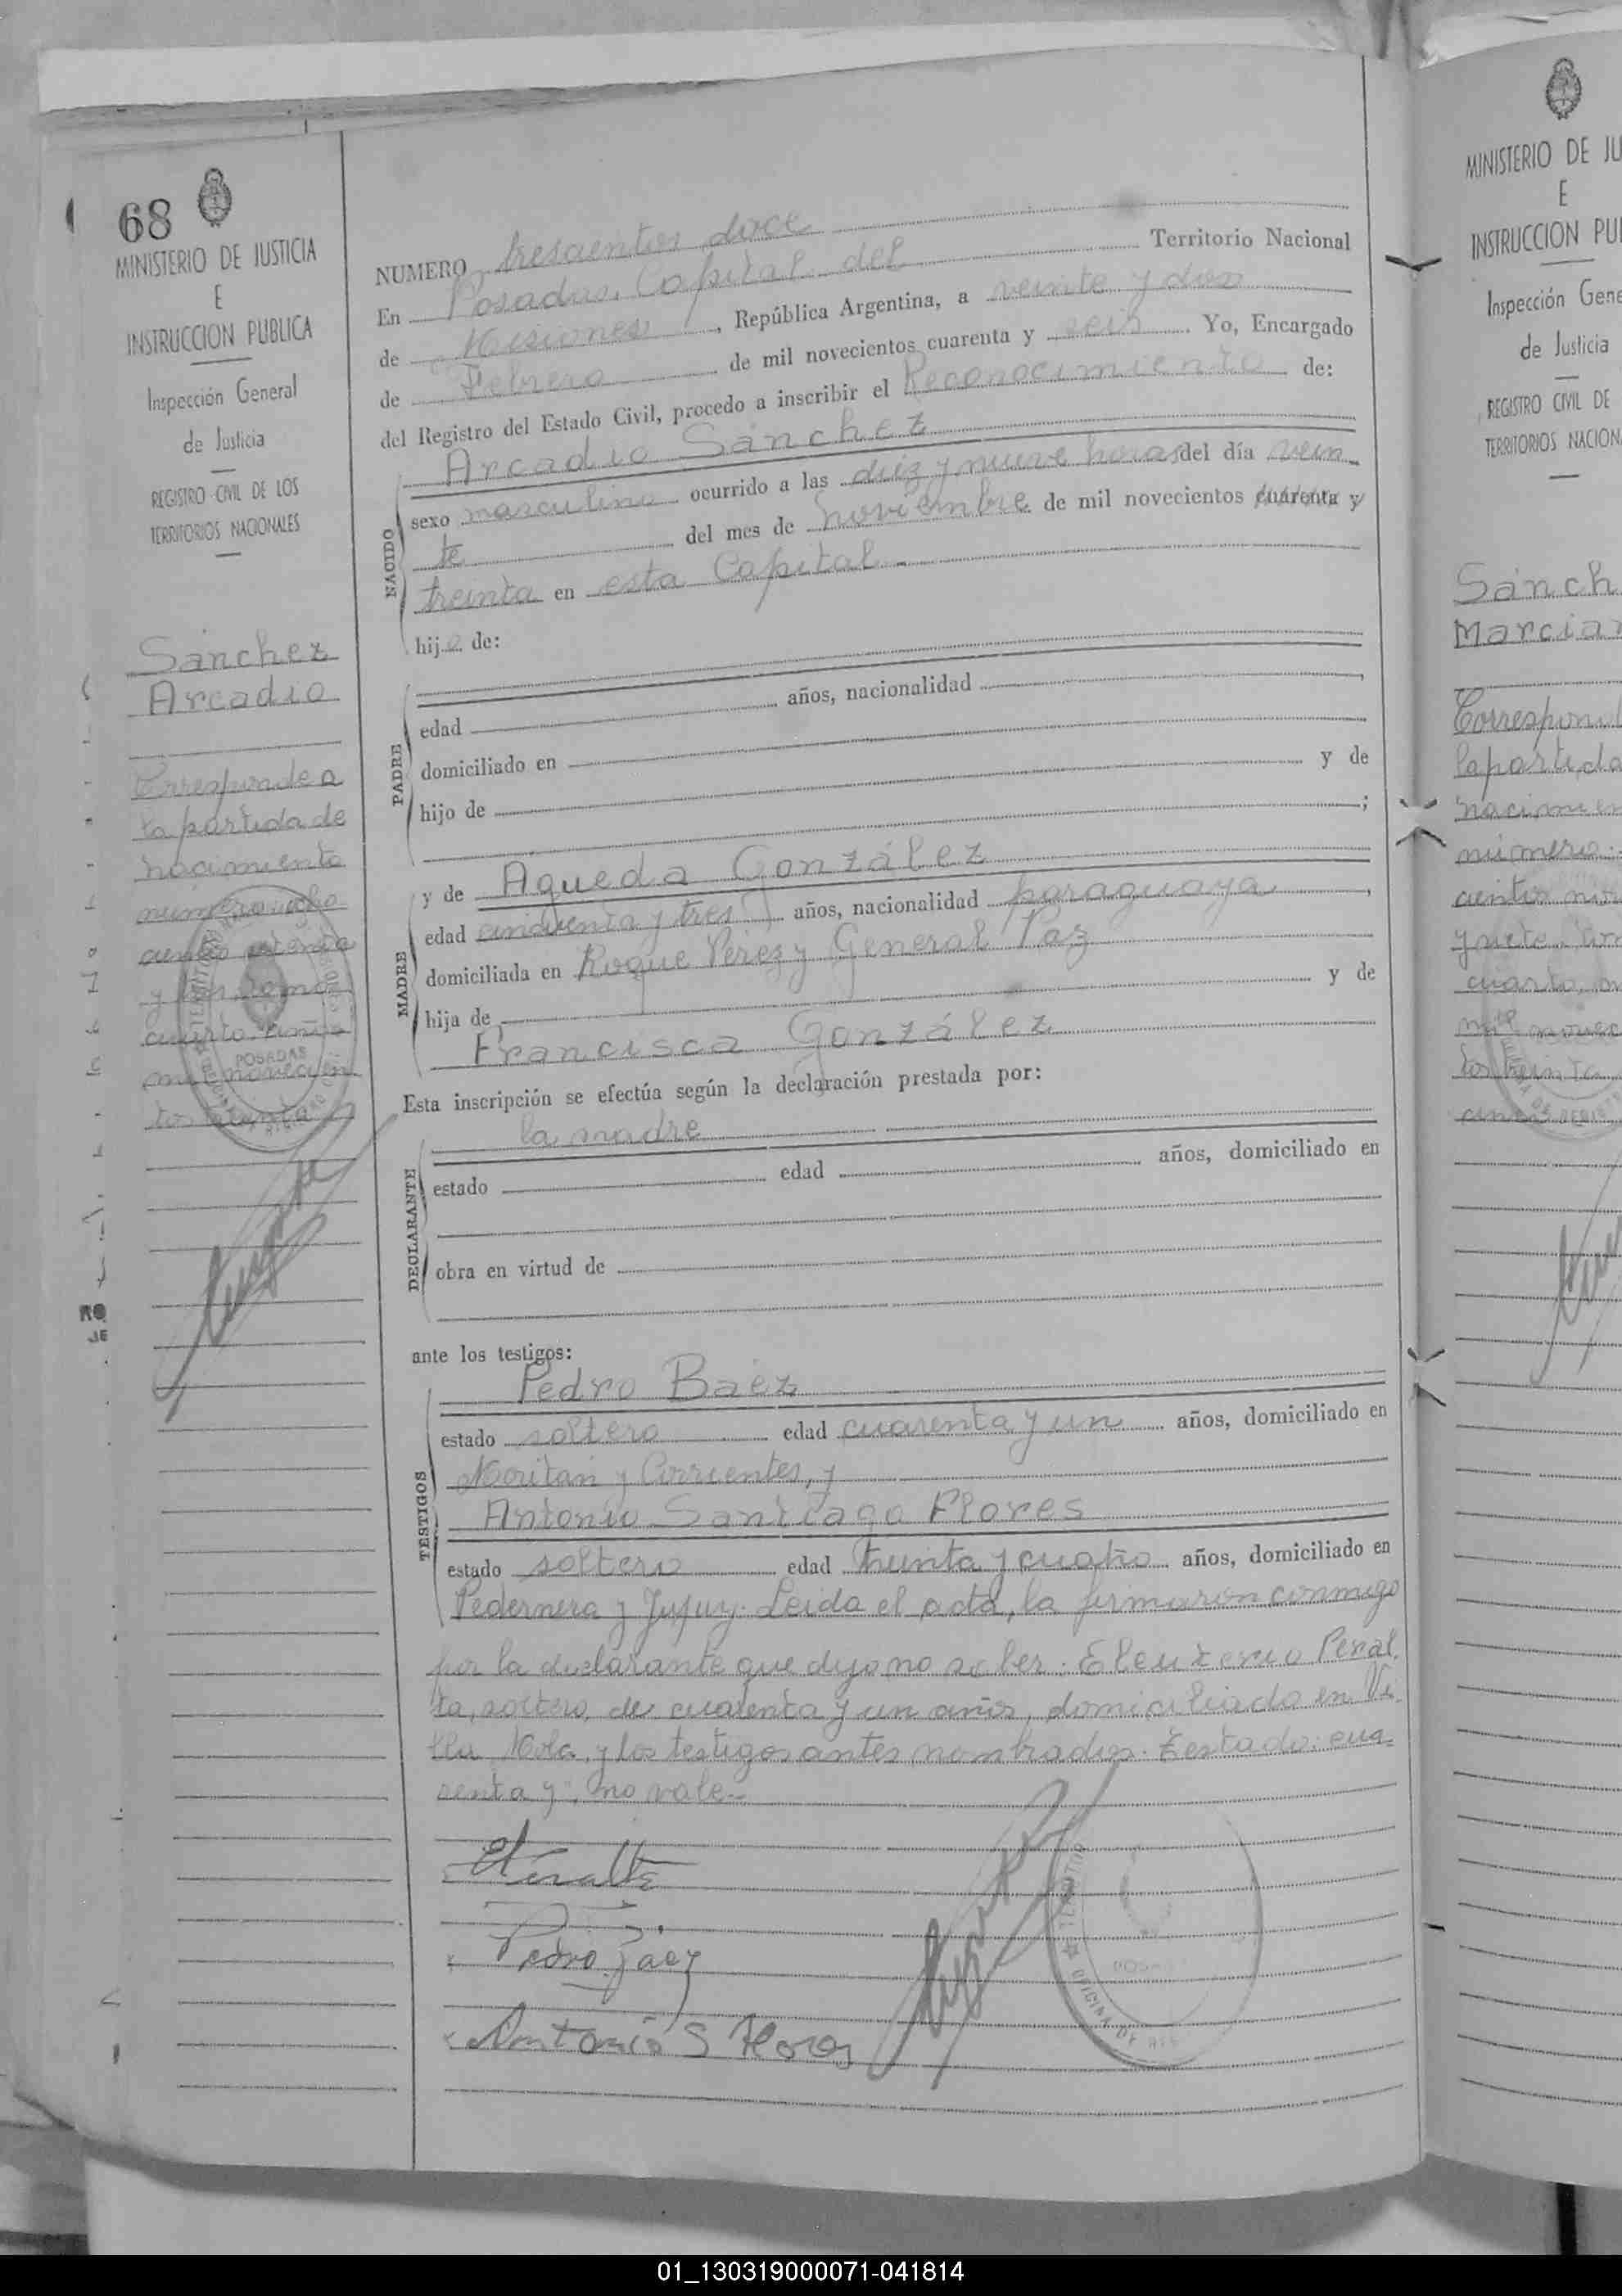 68
MINISTERIO DE JUSTICIA
E
INSTRUCCION PUBLICA
Inspección General
de Justicia
REGISTRO CIVIL DE LOS
TERRITORIOS NACIONALES
Sánchez
Arcadio
Corresponde a
la partida de
nacimiento
número ocho
cientos setenta
y tomo
cuarto, año
mil novecien
tos treinta
NUMERO trescientos doce
En Posadas, Capital del Territorio Nacional
de Misiones, República Argentina, a veinte y dos
de Febrero de mil novecientos cuarenta y seis. Yo, Encargado
del Registro del Estado Civil, procedo a inscribir el Reconocimiento de:
Arcadio Sánchez
NACIDO
sexo masculino ocurrido a las diez y nueve horas del día vein
te del mes de noviembre de mil novecientos cuarenta y
treinta en esta Capital.
hijo de:
PADRE
edad años, nacionalidad
domiciliado en
hijo de y de
;
MADRE
y de Agueda González
edad cincuenta y tres años, nacionalidad paraguaya,
domiciliada en Roque Pérez y General Paz
hija de y de
Francisca González
Esta inscripción se efectúa según la declaración prestada por:
la madre
DECLARANTE
estado edad años, domiciliado en
obra en virtud de
ante los testigos:
Pedro Báez
TESTIGOS
estado soltero edad cuarenta y un años, domiciliado en
y Corrientes, y
Antonio Santiago Flores
estado soltero edad treinta y cuatro años, domiciliado en
Pedernera y Jujuy. Leida el acta, la firmaron conmigo
por la declarante que dijo no saber. Eleuterio Peral
ta, soltero, de cuarenta y un años, domiciliado en Vi
lla Mola, y los testigos antes nombrados. Testado: cua
renta y: no vale.
EPeralta
Pedro Baez
Antonio S Flores
POSADAS
MINISTERIO DE JU
E
INSTRUCCION PU
Inspección Gene
de Justicia
REGISTRO CIVIL DE
TERRITORIOS NACION
Sánch
Marcia
Correspond
la partida
nacimien
número
cientos
y siete
cuarto
mil novec
tos treinta
01_130319000071-041814